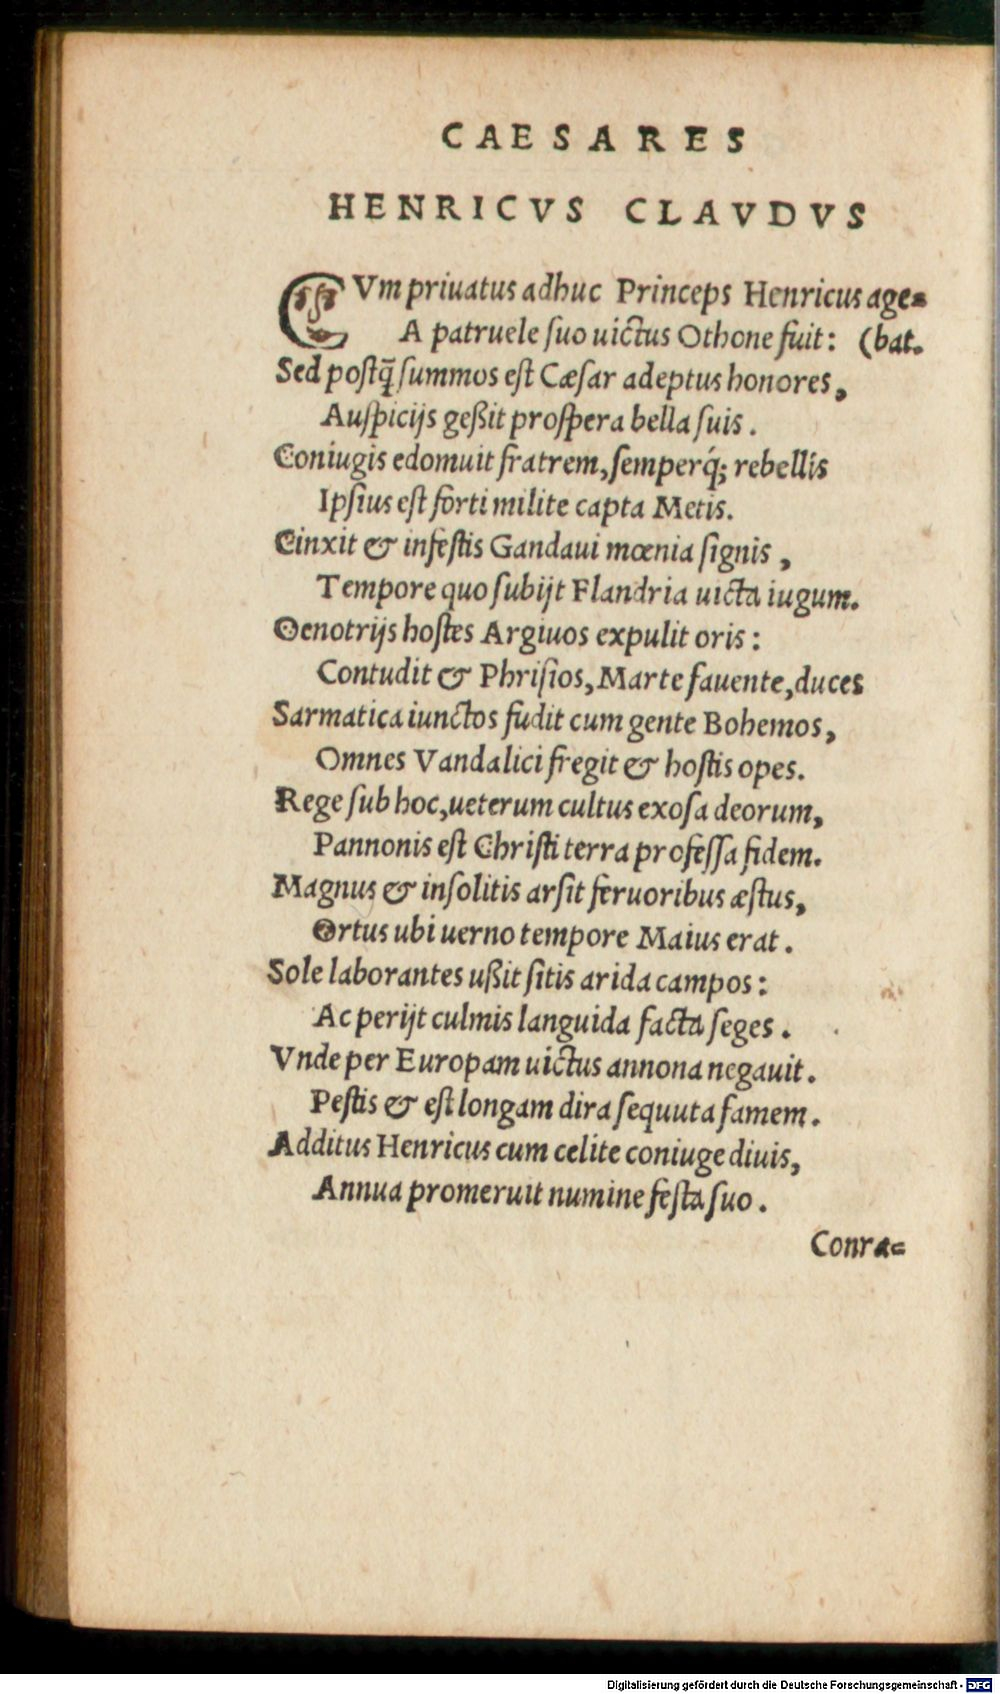 CAESARES
HENRICVS CLAVDVS
CVm priuatus adhuc Princeps Henricus age=
A patruele ſuo uictus Othone fuit: (bat.
Sed poſtq̃ ſummos eſt Cæſar adeptus honores,
Auſpicijs geßit proſpera bella ſuis.
Coniugis edomuit fratrem, ſemperq́; rebellis
Ipſius eſt forti milite capta Metis.
Cinxit & infeſtis Gandaui mœnia ſignis,
Tempore quo ſubijt Flandria uicta iugum.
Oenotrijs hoſtes Argiuos expulit oris:
Contudit & Phriſios, Marte fauente, duces
Sarmatica iunctos fudit cum gente Bohemos,
Omnes Vandalici fregit & hoſtis opes.
Rege ſub hoc, ueterum cultus exoſa deorum,
Pannonis eſt Chriſti terra profeſſa fidem.
Magnus & inſolitis arſit feruoribus æſtus,
Ortus ubi uerno tempore Maius erat.
Sole laborantes ußit ſitis arida campos:
Ac perijt culmis languida facta ſeges.
Vnde per Europam uictus annona negauit.
Peſtis & eſt longam dira ſequuta famem.
Additus Henricus cum celite coniuge diuis,
Annua promeruit numine feſta ſuo.
Conra=
Digitalisierung gefördert durch die Deutsche Forschungsgemeinschaft - DFG